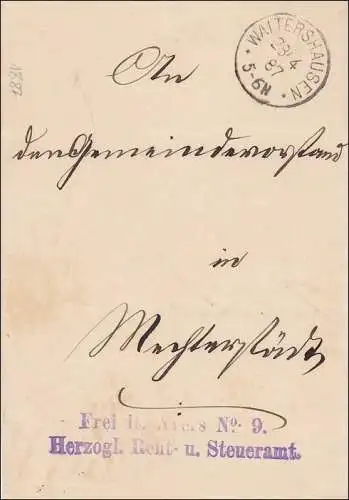 1887
WALTERSHAUSEN
23 4
87
5-6N
An
den Gemeindevorstand
in
Mechterstädt
Frei lt. Avers No. 9.
Herzogl. Rent- u. Steueramt.